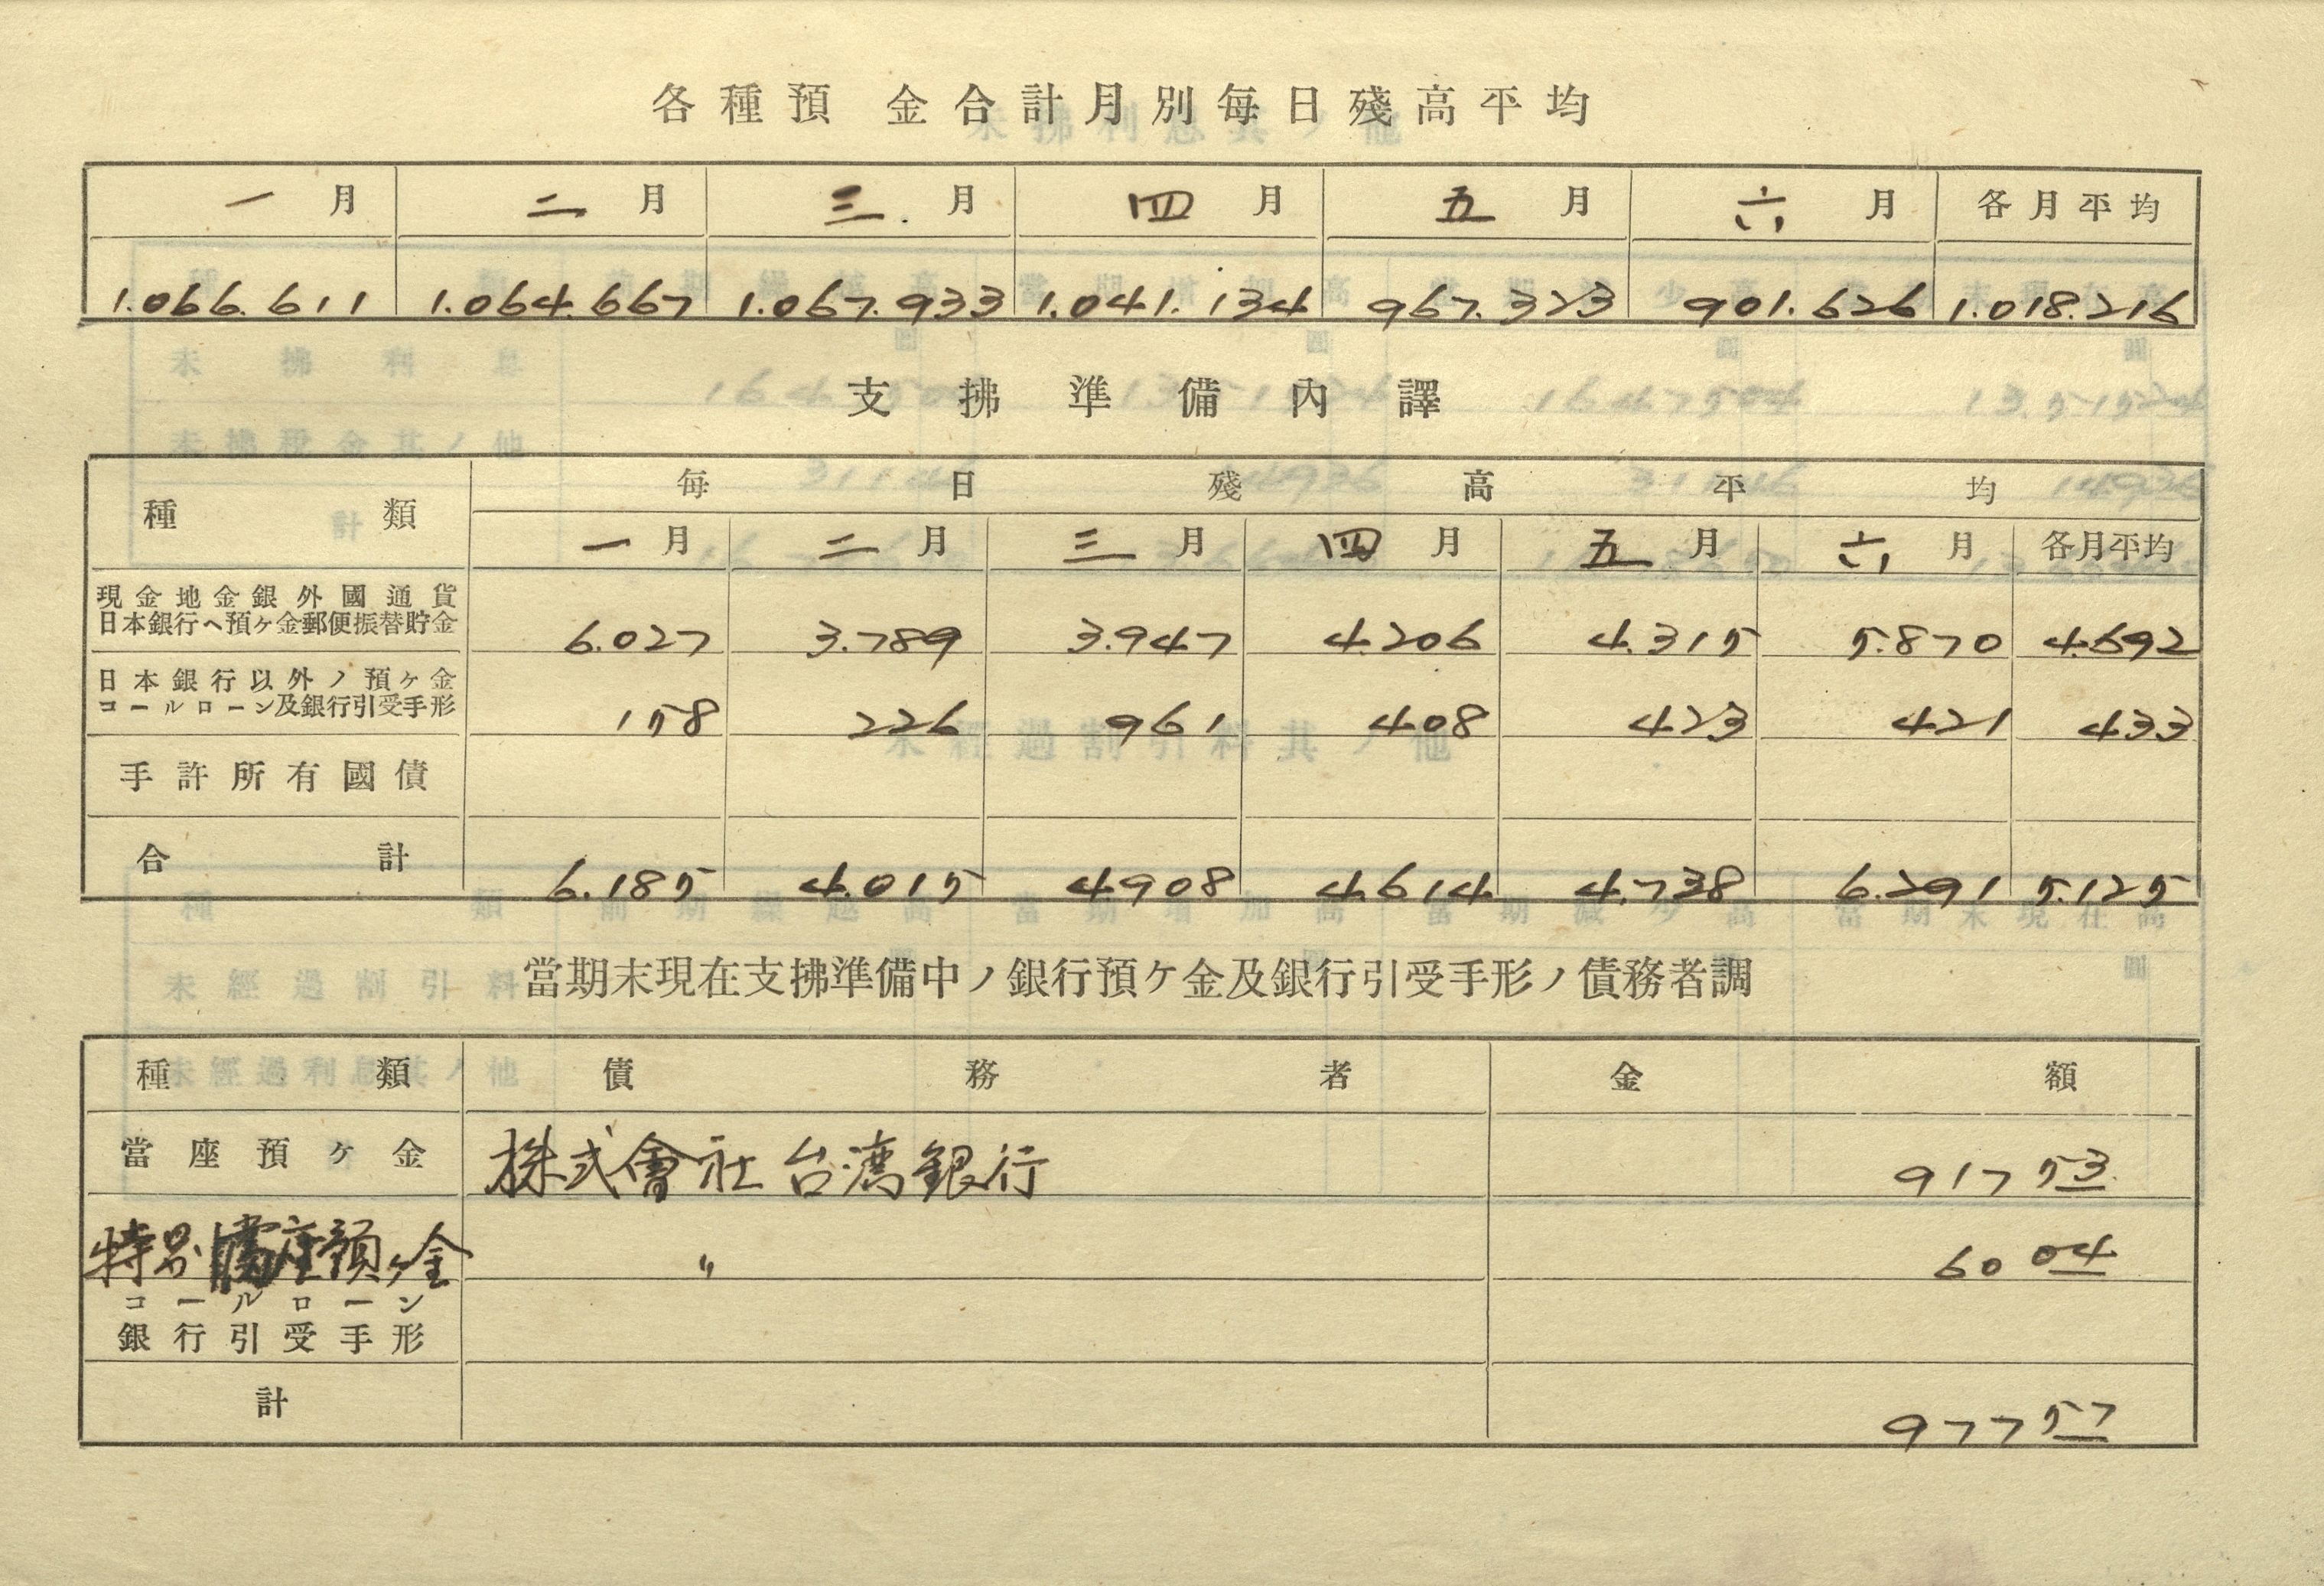 各種預金合計月別每日殘高平均
一月 二月 三月 四月 五月 六月 各月平均
1.066.611 1.064.667 1.067.933 1.041.134 967.323 901.626 1.018.216
支拂準備內譯
種類 每日殘高平均
一月 二月 三月 四月 五月 六月 各月平均
現金地金銀外國通貨
日本銀行ヘ預ヶ金郵便振替貯金 6.027 3.789 3.947 4.206 4.315 5.870 4.692
日本銀行以外ノ預ヶ金
コールローン及銀行引受手形 158 226 961 408 423 421 433
手許所有國債
合計 6.185 4.015 4.908 4.614 4.738 6.291 5.125
當期末現在支拂準備中ノ銀行預ケ金及銀行引受手形ノ債務者調
種類 債務者 金額
當座預ヶ金 株式會社台湾銀行 917 53
特別當座預ヶ金 〃 60 04
コールローン
銀行引受手形
計 977 57